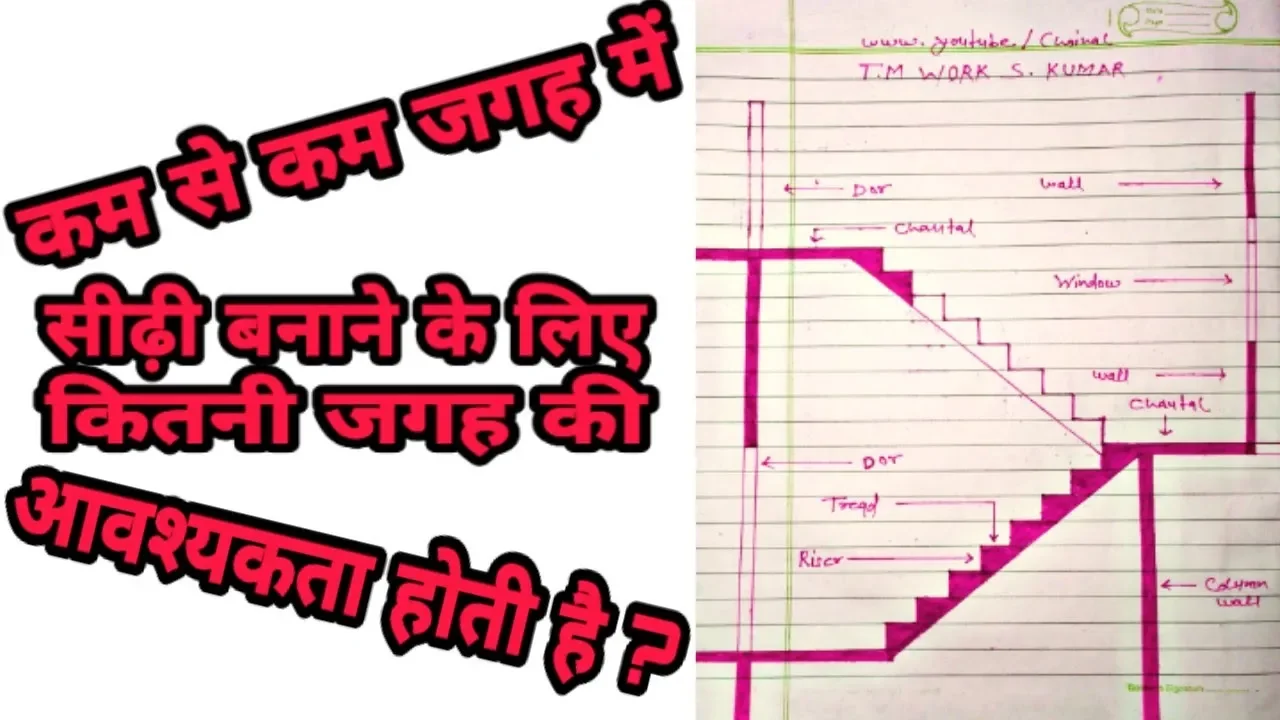 कम से कम जगह में
सीढ़ी बनाने के लिए
कितनी जगह की
आवश्यकता होती है ?
Date
Page
www.youtube/Chainal
T.M WORK S. KUMAR
Dor
wall
Chautal
Window
wall
Chautal
Dor
Tread
Riser
Column
wall